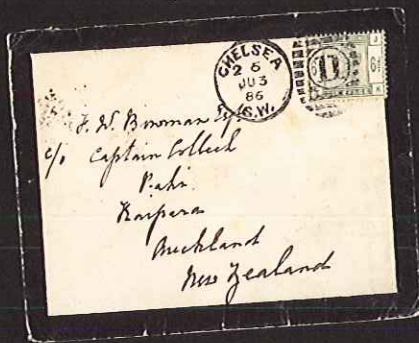 CHELSEA
2 6
JU 3
86
S.W.
11
6d
J. W. Bowman Esq.
c/o Captain Colbeck
Pahi
Kaipara
Auckland
New Zealand